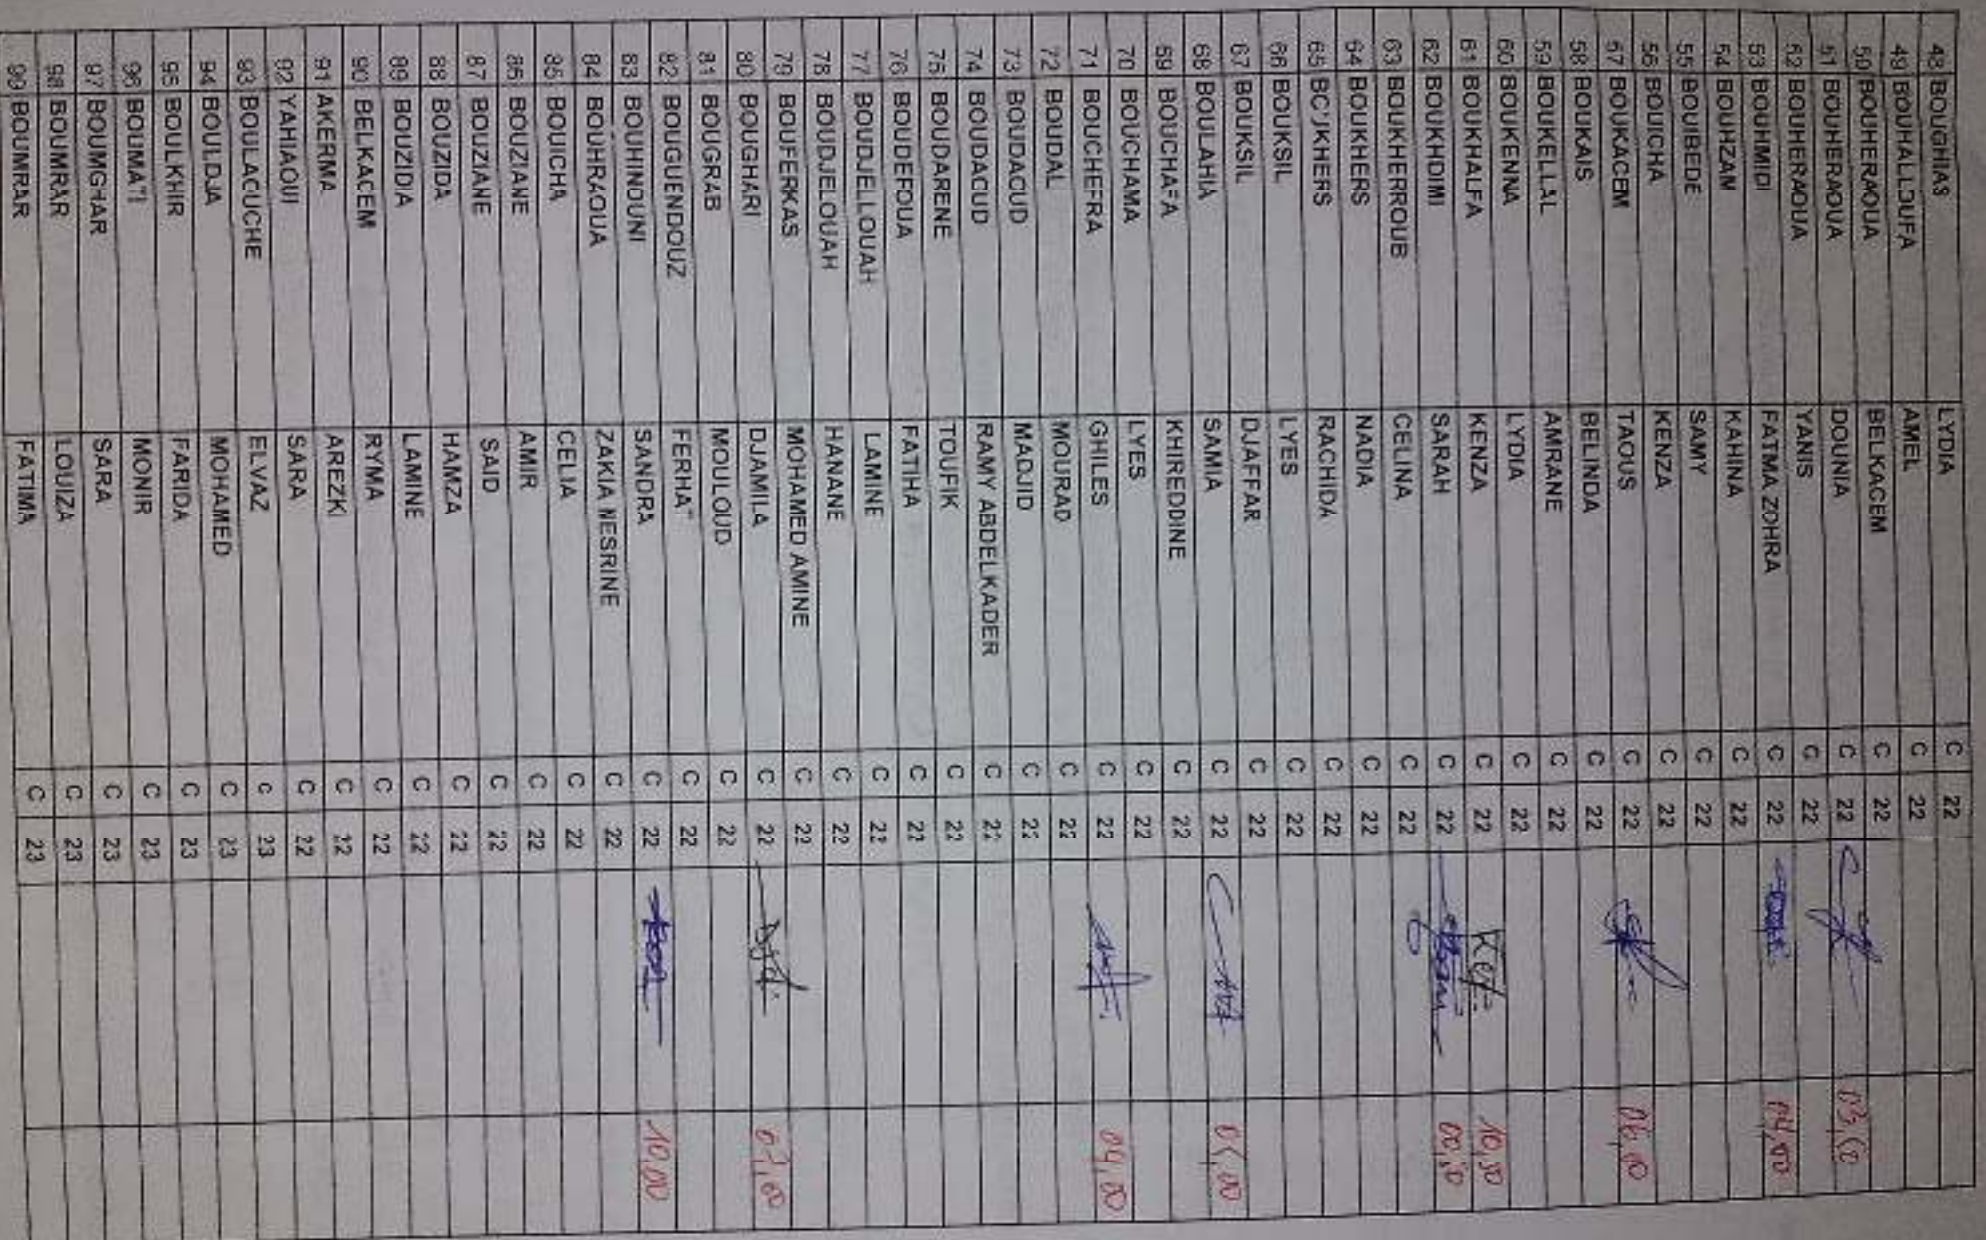 48 BOUGHIAS LYDIA C 22
49 BOUHALLOUFA AMEL C 22
50 BOUHERAOUA BELKACEM C 22
51 BOUHERAOUA DOUNIA C 22 03,50
52 BOUHERAOUA YANIS C 22
53 BOUHMIDI FATMA ZOHRA C 22 04,00
54 BOUHZAM KAHINA C 22
55 BOUIBEDE SAMY C 22
56 BOUICHA KENZA C 22
57 BOUKACEM TAOUS C 22 06,00
58 BOUKAIS BELINDA C 22
59 BOUKELLAL AMRANE C 22
60 BOUKENNA LYDIA C 22
61 BOUKHALFA KENZA C 22 10,50
62 BOUKHDIMI SARAH C 22 00,50
63 BOUKHERROUB CELINA C 22
64 BOUKHERS NADIA C 22
65 BOUKHERS RACHIDA C 22
66 BOUKSIL LYES C 22
67 BOUKSIL DJAFFAR C 22
68 BOULAHIA SAMIA C 22 05,00
69 BOUCHAFA KHIREDDINE C 22
70 BOUCHAMA LYES C 22
71 BOUCHEFRA GHILES C 22 04,00
72 BOUDAL MOURAD C 22
73 BOUDAOUD MADJID C 22
74 BOUDAOUD RAMY ABDELKADER C 22
75 BOUDARENE TOUFIK C 22
76 BOUDEFOUA FATIHA C 22
77 BOUDJELLOUAH LAMINE C 22
78 BOUDJELOUAH HANANE C 22
79 BOUFERKAS MOHAMED AMINE C 22
80 BOUGHARI DJAMILA C 22 07,00
81 BOUGRAB MOULOUD C 22
82 BOUGUENDOUZ C 22
83 BOUHINDOUNI SANDRA C 22 10,00
84 BOUHRAOUA ZAKIA NESRINE C 22
85 BOUICHA CELIA C 22
86 BOUZIANE AMIR C 22
87 BOUZIANE SAID C 22
88 BOUZIDA HAMZA C 22
89 BOUZIDIA LAMINE C 22
90 BELKACEM RYMA C 22
91 AKERMA AREZKI C 22
92 YAHIAOUI SARA C 22
93 BOULAOUCHE ELYAZ C 23
94 BOULDJA MOHAMED C 23
95 BOULKHIR FARIDA C 23
96 MONIR C 23
97 BOUMGHAR SARA C 23
98 BOUMRAR LOUIZA C 23
99 BOUMRAR FATIMA C 23